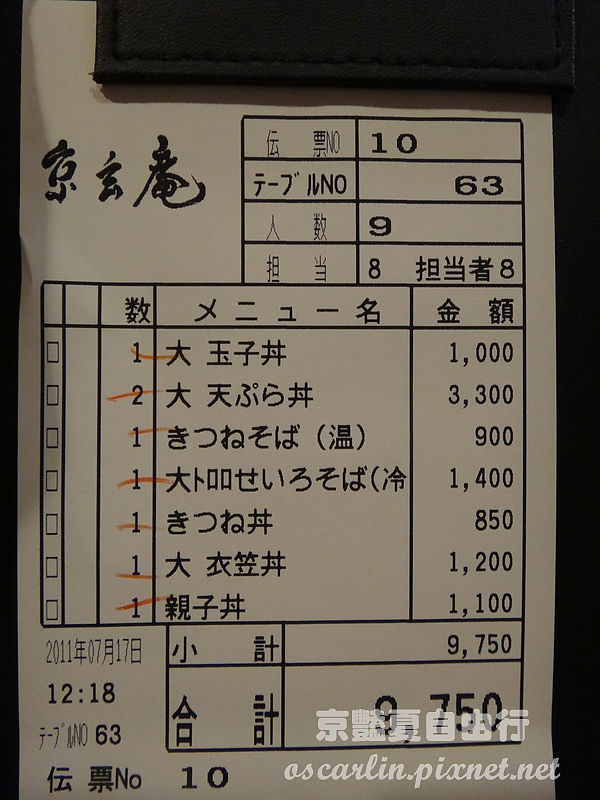 京玄庵
伝 票NO 10
ﾃｰﾌﾞﾙNO 63
人 数 9
担 当 8 担当者8
数 メニュー名 金 額
1 大 玉子丼 1,000
2 大 天ぷら丼 3,300
1 きつねそば（温） 900
1 大ﾄﾛﾛせいろそば(冷 1,400
1 きつね丼 850
1 大 衣笠丼 1,200
1 親子丼 1,100
2011年07月17日 小 計 9,750
12:18
合 計 9,750
ﾃｰﾌﾞﾙNO 63
伝 票No 10
京豔夏自由行
oscarlin.pixnet.net